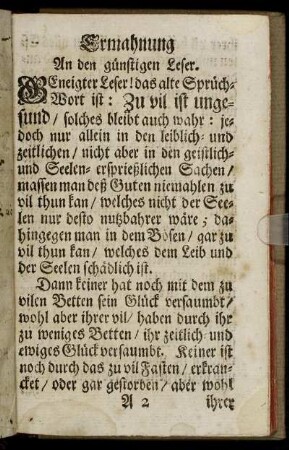 Ermahnung
An den günstigen Leser.
GEneigter Leser! das alte Sprüch-
Wort ist: Zu vil ist unge-
sund / solches bleibt auch wahr: je-
doch nur allein in den leiblich- und
zeitlichen / nicht aber in den geistlich-
und Seelen- ersprießlichen Sachen /
massen man deß Guten niemahlen zu
vil thun kan / welches nicht der See-
len nur desto nutzbahrer wäre; da-
hingegen man in dem Bösen / gar zu
vil thun kan / welches dem Leib und
der Seelen schädlich ist.
Dann keiner hat noch mit dem zu
vilen Betten sein Glück versaumbt /
wohl aber ihrer vil / haben durch ihr
zu weniges Betten / ihr zeitlich- und
ewiges Glück versaumbt. Keiner ist
noch durch das zu vil Fasten / erkran-
cket / oder gar gestorben / aber wohl
A 2 ihrer